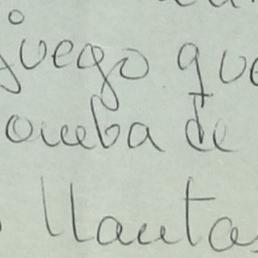 juego que
omba de
llantas